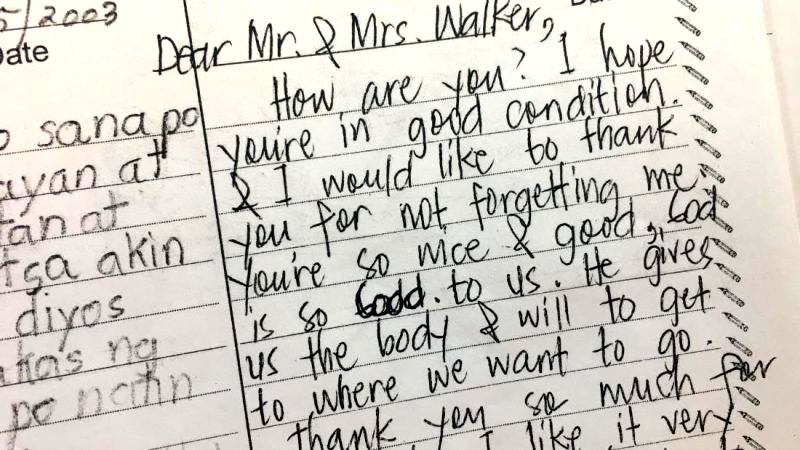 5/2003
Date
sana po
ayan at
tan at
tsa akin
diyos
akas ng
po natin
Dear Mr. & Mrs. Walker,
How are you? I hope
you're in good condition.
& I would like to thank
you for not forgetting me.
You're so nice & good, God
is so Godd. to us. He gives
us the body & will to get
to where we want to go.
thank you so much for
I like it very